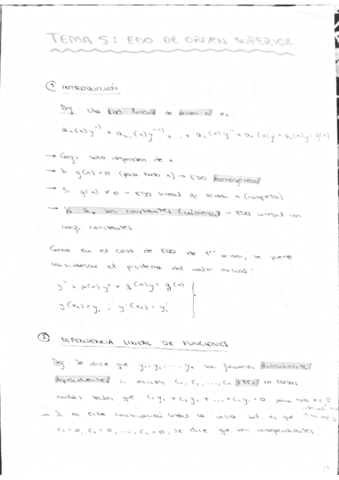 TEMA 5: EDO DE ORDEN SUPERIOR
① INTRODUCCIÓN
Def: Una EDO lineal de orden n es:
→ Coefs. solo dependen de x
→ Si g(x) = 0 (para todo x) → EDO homogénea
→ Si g(x) ≠ 0 → EDO lineal de orden n (completa)
→ Si son constantes (números) → EDO lineal con
coefs. constantes.
Como en el caso de EDO de 1er orden, se puede
considerar el problema del valor inicial:
y'' + p(x)y' + q(x)y = g(x)
② DEPENDENCIA LINEAL DE FUNCIONES
Def: Se dice que y₁, y₂, ..., yₙ son funciones linealmente
dependientes si existen C₁, C₂, ..., Cₙ no todas
nulas tales que C₁y₁ + C₂y₂ + ... + Cₙyₙ = 0 para todo x
→ Si en esta combinación lineal la única sol. es que
C₁ = 0, C₂ = 0, ..., Cₙ = 0, se dice que son independientes